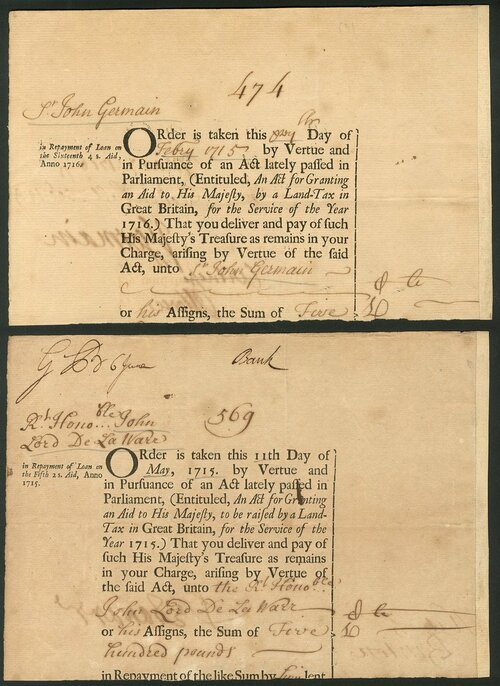 474
Sr. John Germain
in Repayment of Loan on
the Sixteenth 4 s. Aid,
Anno 1716.
ORder is taken this Day of
Febry 1715 by Vertue and
in Pursuance of an Act lately paſſed in
Parliament, (Entituled, An Act for Granting
an Aid to His Majeſty, by a Land-Tax in
Great Britain, for the Service of the Year
1716.) That you deliver and pay of ſuch
His Majeſty's Treaſure as remains in your
Charge, ariſing by Vertue of the ſaid
Act, unto Sr. John Germain
or his Aſſigns, the Sum of Five
6 June
Bank
Rt. Honoble John
Lord De La Warr
569
in Repayment of Loan on
the Fifth 2 s. Aid, Anno
1715.
ORder is taken this 11th Day of
May, 1715. by Vertue and
in Purſuance of an Act lately paſſed in
Parliament, (Entituled, An Act for Granting
an Aid to His Majeſty, to be raiſed by a Land-
Tax in Great Britain, for the Service of the
Year 1715.) That you deliver and pay of
ſuch His Majeſty's Treaſure as remains
in your Charge, ariſing by Vertue of
the ſaid Act, unto the Rt. Honoble
John Lord De La Warr
or his Aſſigns, the Sum of Five
hundred pounds
in Repayment of the like Sum by him lent